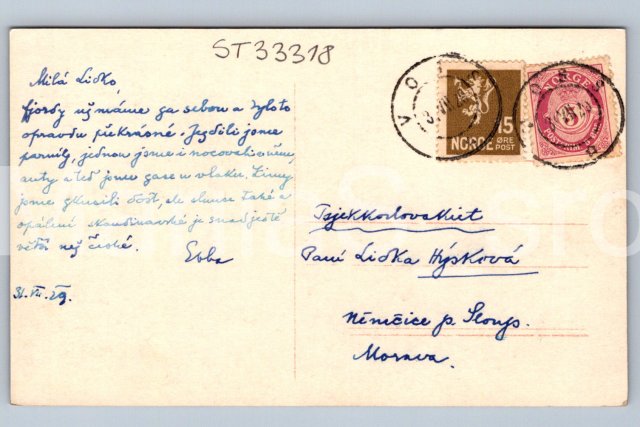 ST33318
Milá Lidko,
fjordy už máme za sebou a bylo to
opravdu překrásné. Jezdili jsme
parníky, jednou jsme i nocovali v něm,
auty a teď jsme zase ve vlaku. Zimy
jsme zkusili dost, ale slunce také a
opálení skandinávské je snad ještě
větší než české.
Ebba
31. VII. 29.
VOSS
NORGE 15
ØRE
POST
NORGE
Tsjekkoslovakiet
Paní Lidka Hýsková
Němčice p. Sloup.
Morava.